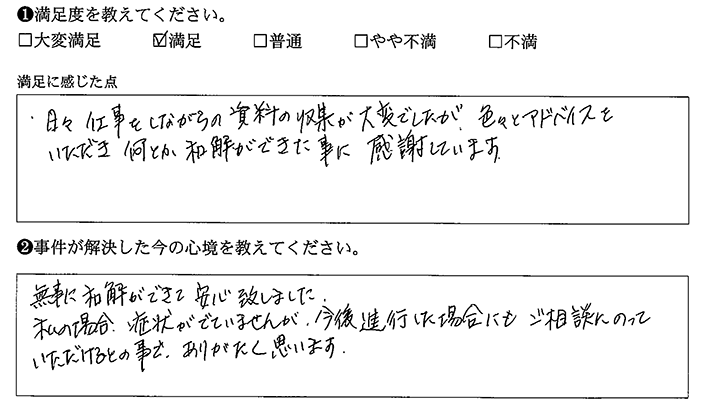 ❶満足度を教えてください。
□大変満足 ☑満足 □普通 □やや不満 □不満
満足に感じた点
・日々仕事をしながらの資料の収集が大変でしたが、色々とアドバイスを
いただき何とか和解ができた事に感謝しています。
❷事件が解決した今の心境を教えてください。
無事に和解ができて安心致しました。
私の場合、症状がでていませんが、今後進行した場合にもご相談にのって
いただけるとの事で、ありがたく思います。